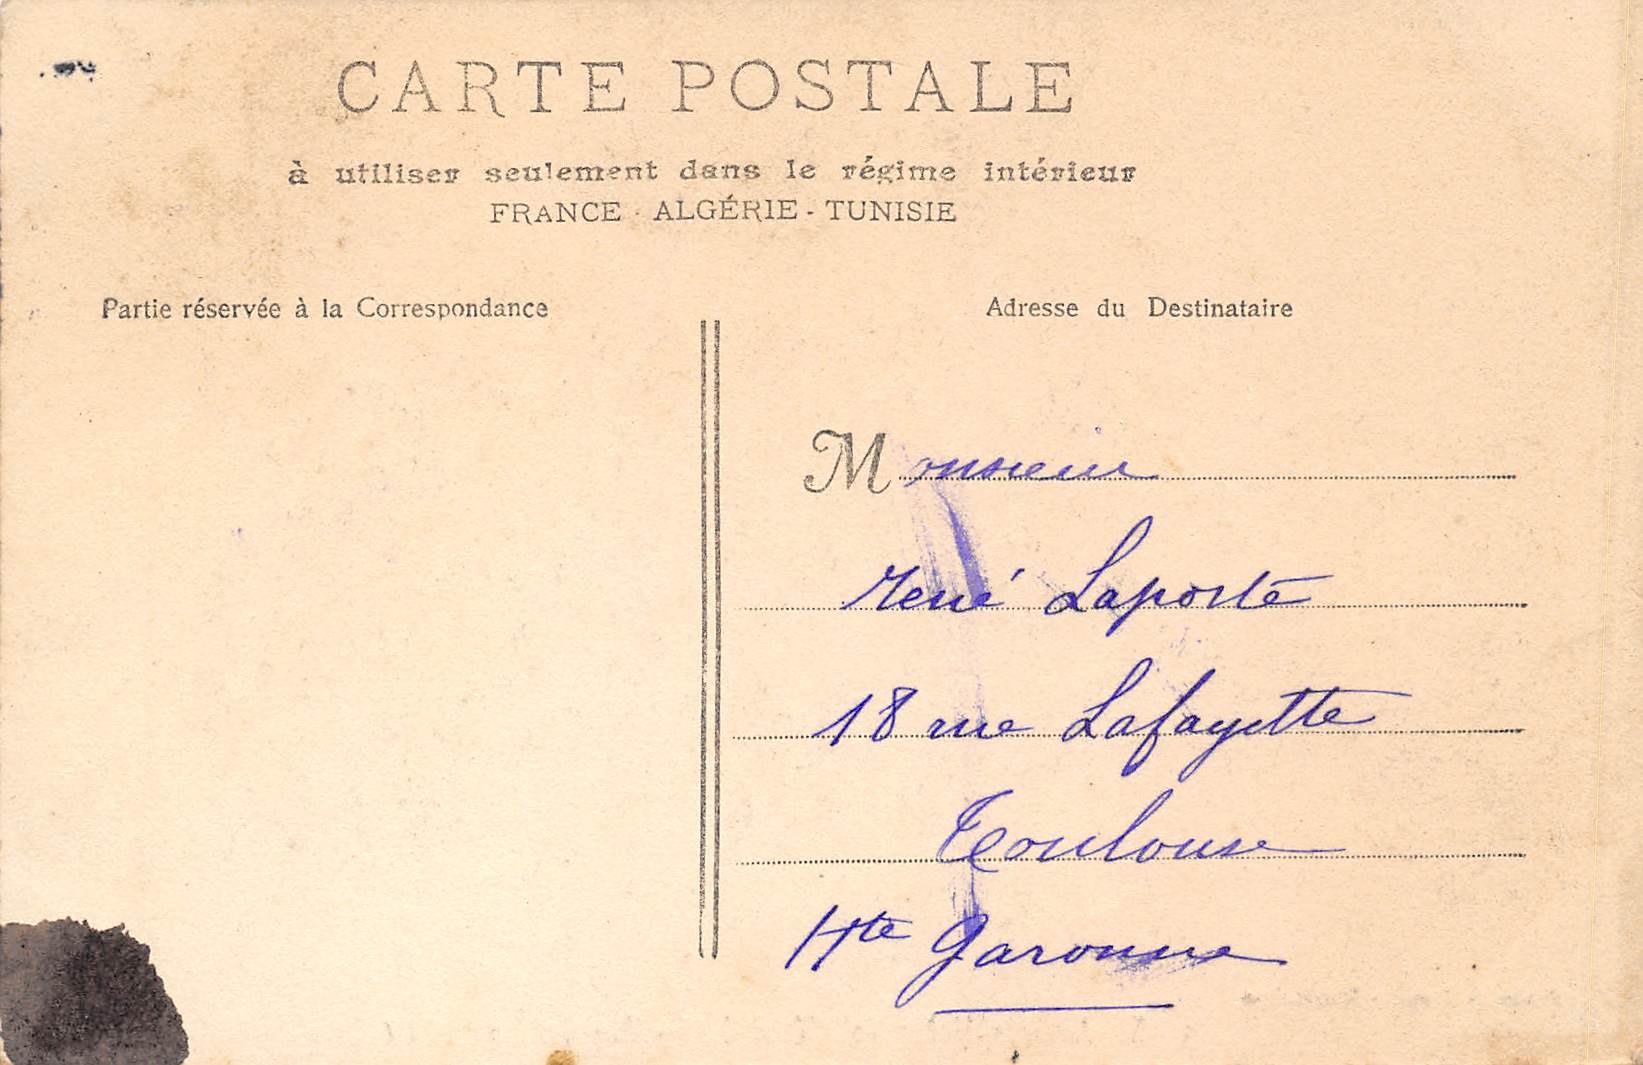 CARTE POSTALE
à utiliser seulement dans le régime intérieur
FRANCE - ALGÉRIE - TUNISIE
Partie réservée à la Correspondance
Adresse du Destinataire
Monsieur
René Laporte
18 rue Lafayette
Toulouse
Hte Garonne